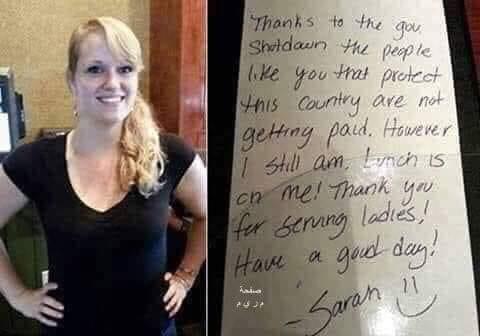 Thanks to the gov
Shotdown the people
like you that protect
this Country are not
getting paid. However
I still am. Lunch is
on me! Thank you
for serving ladies!
Have a good day!
-Sarah !!
صفحة
م ر ي م